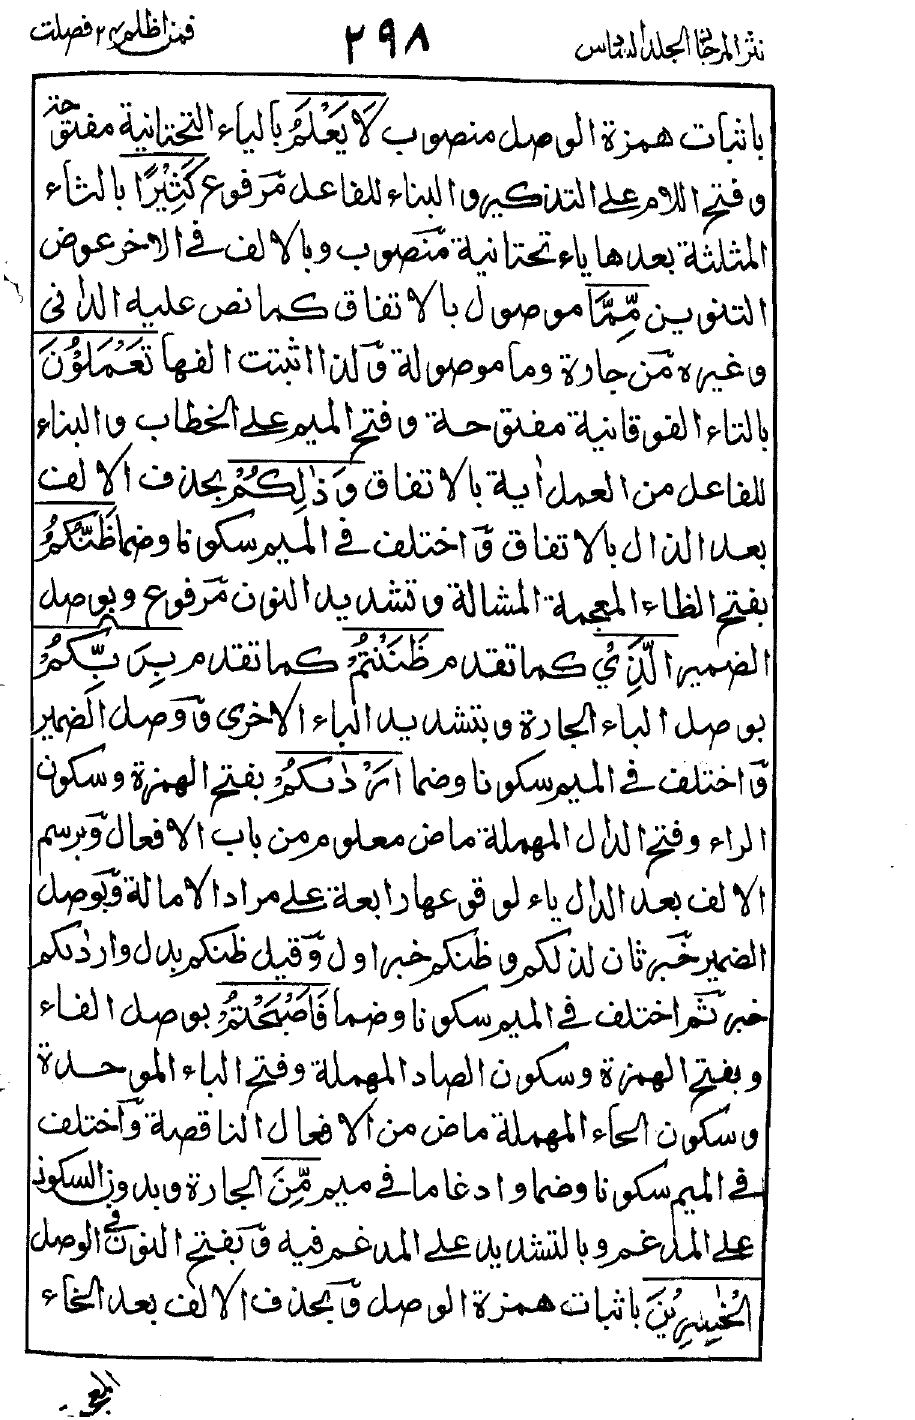 نثر المرجان المجلد السادس
٢٩٨
فمن اظلم ٢٤ فصلت
باثبات همزة الوصل منصوب لَا يَعْلَمُ بالياء التحتانية مفتوحة
وفتح اللام على التذكير والبناء للفاعل مرفوع كَثِيْرًا بالثاء
المثلثة بعدها ياء تحتانية منصوب وبالالف في الاخر عوض
التنوين مِّمَّا موصول بالاتفاق كما نص عليه الداني
وغيره من جارة وما موصولة ولذا اثبتت الفها تَعْمَلُوْنَ
بالتاء الفوقانية مفتوحة وفتح الميم على الخطاب والبناء
للفاعل من العمل اية بالاتفاق وَذٰلِكُمْ بحذف الالف
بعد الذال بالاتفاق واختلف في الميم سكونا وضما ظَنُّكُمُ
بفتح الظاء المعجمة المشالة وتشديد النون مرفوع وبوصل
الضمير الَّذِيْ كما تقدم ظَنَنْتُمْ كما تقدم بِرَبِّكُمْ
بوصل الباء الجارة وبتشديد الباء الاخرى ووصل الضمير
واختلف في الميم سكونا وضما اَرْدٰىكُمْ بفتح الهمزة وسكون
الراء وفتح الدال المهملة ماض معلوم من باب الافعال وبرسم
الالف بعد الدال ياء لوقوعها رابعة على مراد الامالة وبوصل
الضمير خبر ثان لذلكم وظنكم خبر اول وقيل ظنكم بدل وارذىكم
خبر ثم اختلف في الميم سكونا وضما فَاَصْبَحْتُمْ بوصل الفاء
وبفتح الهمزة وسكون الصاد المهملة وفتح الباء الموحدة
وسكون الحاء المهملة ماض من الافعال الناقصة واختلف
في الميم سكونا وضما وادغاما في ميم مِّنَ الجارة وبدون السكون
على المدغم وبالتشديد على المدغم فيه وبفتح النون في الوصل
الْخٰسِرِيْنَ باثبات همزة الوصل وبحذف الالف بعد الخاء
المعجمة